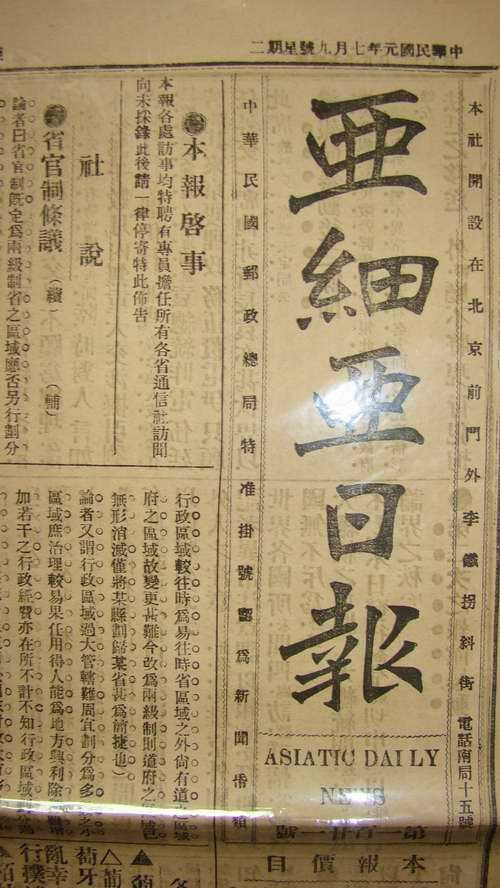 中華民國元年七月九號星期二
本社開設在北京前門外李鐵拐斜街 電話南局十五號
亞細亞日報
ASIATIC DAILY
NEWS
本報價目
中華民國郵政總局特准掛號認為新聞紙類
本報啓事
本報各處訪事均特聘有專員擔任所有各省通信社訪聞
向未採錄此後請一律停寄特此佈告
社說
省官制條議 (續) (輔)
論者曰省官制旣定爲兩級制省之區域應否另行劃分
行政區域較往時爲易往時省區域之外尙有道
府之區域故變更甚難今改爲兩級制則道府之
無形消滅僅將某縣劃歸某省甚爲簡捷也)
論者又謂行政區域過大管轄難周宜劃分爲多
區域庶治理較易果任用得人能爲地方興利除
加若干之行政經費亦在所不計不知行政區域